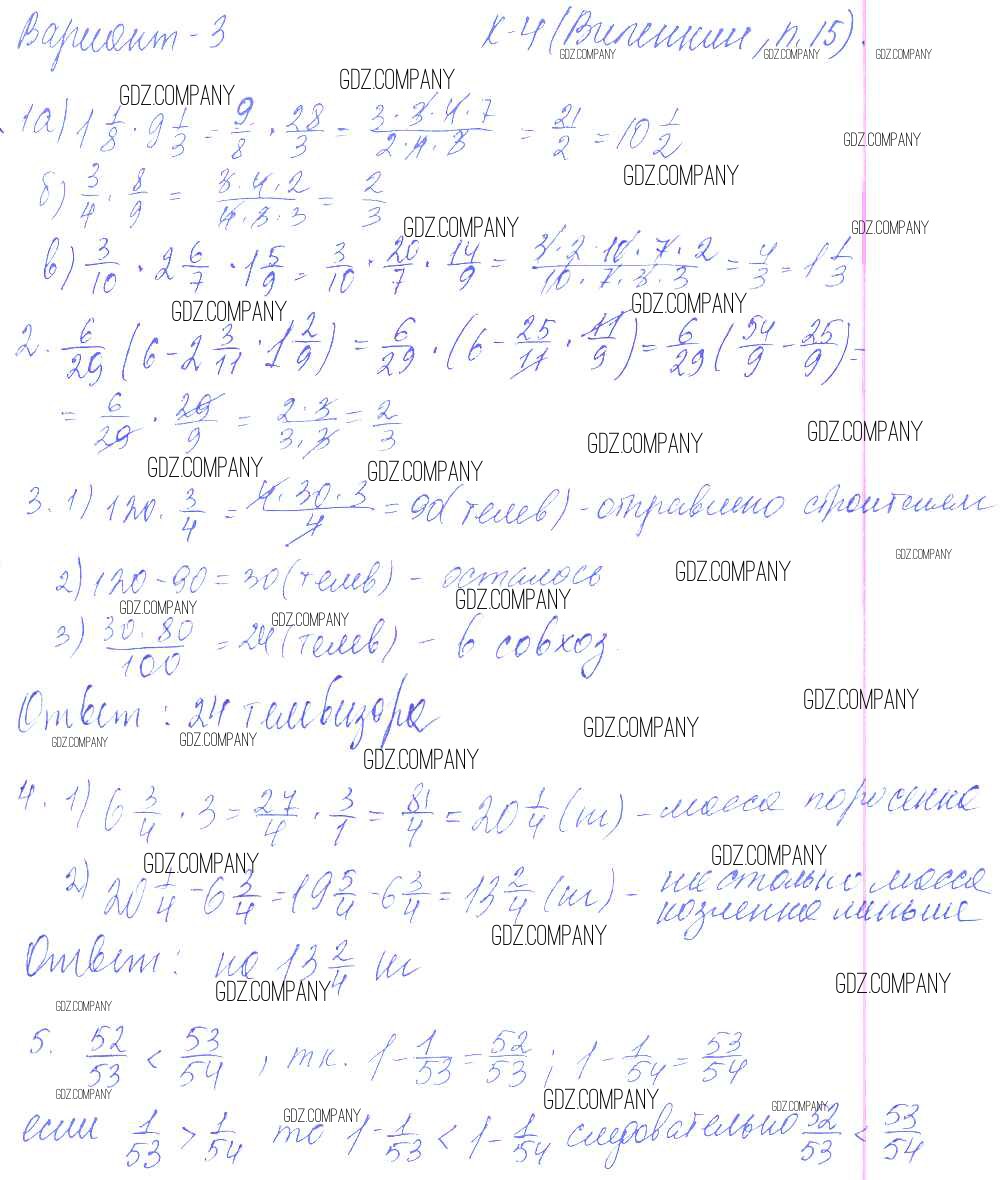 Вариант - 3 К-4 (Виленкин, п. 15).
1а) 1 1/8 · 9 1/3 = 9/8 · 28/3 = 3·3·4·7/2·4·3 = 21/2 = 10 1/2
б) 3/4 · 8/9 = 3·4·2/4·3·3 = 2/3
в) 3/10 · 2 6/7 · 1 5/9 = 3/10 · 20/7 · 14/9 = 3·2·10·7·2/10·7·3·3 = 4/3 = 1 1/3
2. 6/29 (6 - 2 3/11 · 1 2/9) = 6/29 · (6 - 25/11 · 11/9) = 6/29 (54/9 - 25/9) =
= 6/29 · 29/9 = 2·3/3·3 = 2/3
3. 1) 120 · 3/4 = 4·30·3/4 = 90 (телев) - отправлено строителям
2) 120 - 90 = 30 (телев) - осталось
3) 30·80/100 = 24 (телев) - в совхоз.
Ответ: 24 телевизора
4. 1) 6 3/4 · 3 = 27/4 · 3/1 = 81/4 = 20 1/4 (кг) - масса поросенка
2) 20 1/4 - 6 3/4 = 19 5/4 - 6 3/4 = 13 2/4 (кг) - настолько масса
козленка меньше
Ответ: на 13 2/4 кг
5. 52/53 < 53/54, т.к. 1 - 1/53 = 52/53; 1 - 1/54 = 53/54
если 1/53 > 1/54 то 1 - 1/53 < 1 - 1/54 следовательно 52/53 < 53/54
GDZ.COMPANY